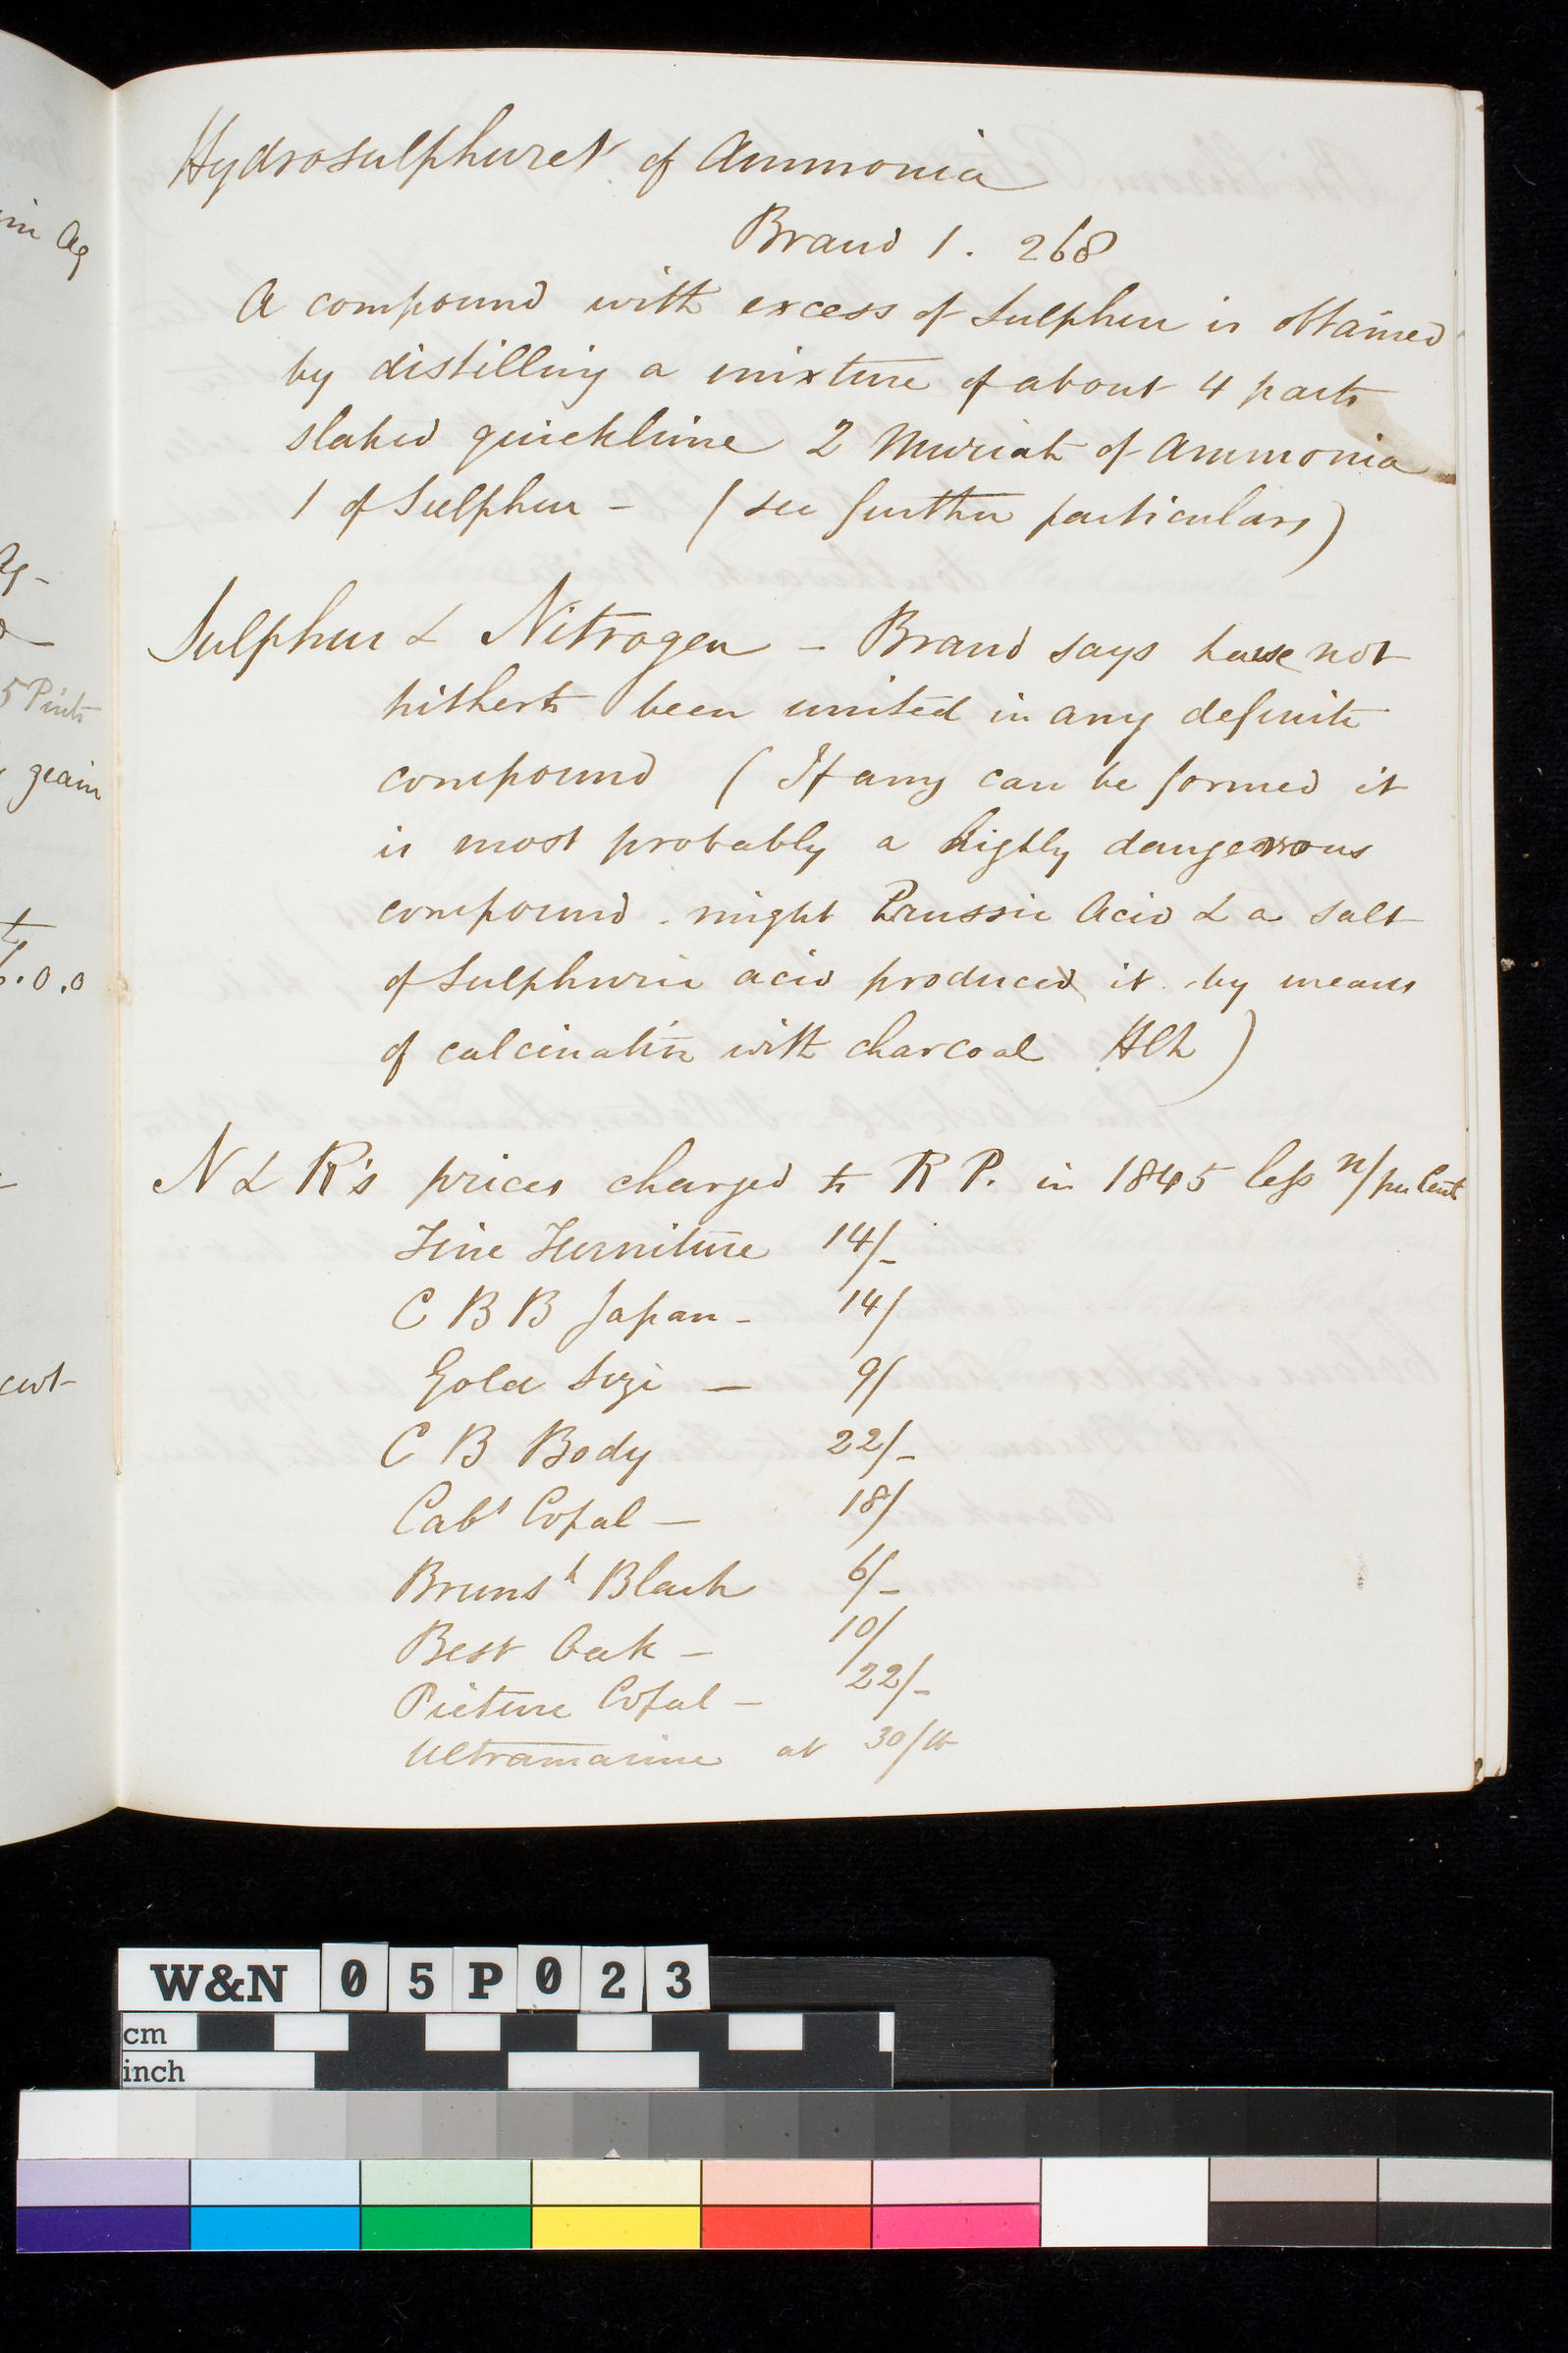 Hydrosulphuret of Ammonia
Brand 1. 268
A compound with excess of Sulphur is obtained
by distilling a mixture of about 4 parts
slaked quicklime 2 Muriate of Ammonia
1 of Sulphur - (see further particulars)
Sulphur & Nitrogen - Brand says have not
hitherto been united in any definite
compound (If any can be formed it
is most probably a highly dangerous
compound. might Prussic Acid & a salt
of Sulphuric acid produced it by means
of calcination with charcoal
N & R's prices charged to R P. in 1845 less per Cent
Fine Furniture 14/-
C B B Japan - 14/
Gold Size - 9/
C B Body 22/-
Cabt Copal - 18/
Brunsk Black 6/-
Best Oak - 10/
Picture Copal - 22/-
Ultramarine at 30/lb
in Ag
5 Pints
grain
0.0
cwt
W&N 05P023
cm
inch